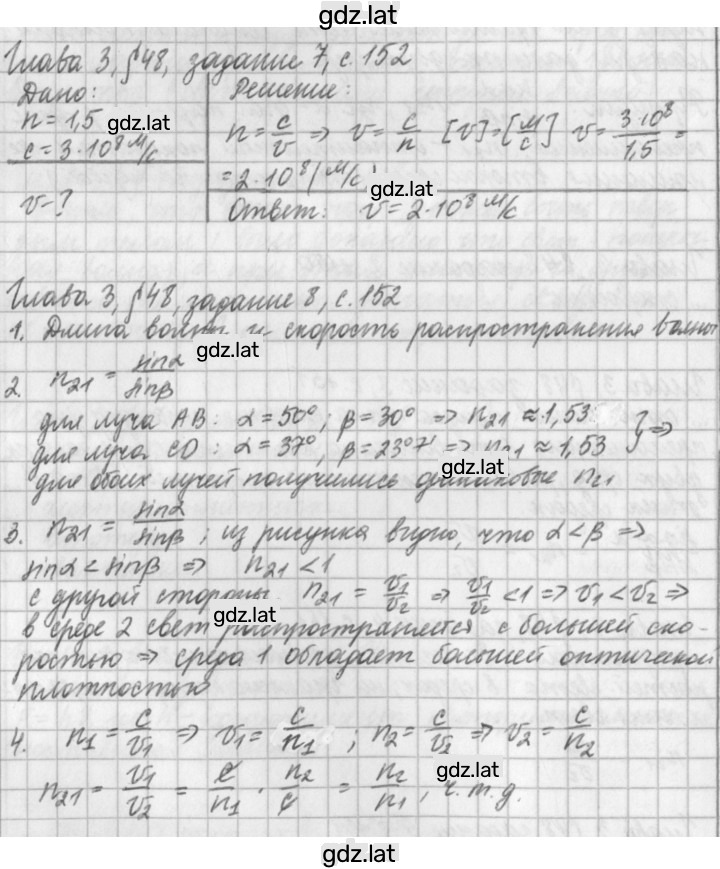 gdz.lat
Глава 3, §48, задание 7, с. 152
Дано:
n = 1,5
c = 3·10⁸ м/с
v - ?
gdz.lat
Решение:
n = c/v ⇒ v = c/n [v] = [м/с] v = 3·10⁸/1,5 =
= 2·10⁸ (м/с)
gdz.lat
Ответ: v = 2·10⁸ м/с
Глава 3, §48, задание 8, с. 152
1. Длина волны и скорость распространения волны
gdz.lat
2. n₂₁ = sinα/sinβ
для луча AB: α = 50°; β = 30° ⇒ n₂₁ ≈ 1,53 } ⇒
для луча CD: α = 37°, β = 23°7' ⇒ n₂₁ ≈ 1,53
gdz.lat
для обоих лучей получились одинаковые n₂₁
3. n₂₁ = sinα/sinβ; из рисунка видно, что α < β ⇒
sinα < sinβ ⇒ n₂₁ < 1
с другой стороны n₂₁ = v₁/v₂ ⇒ v₁/v₂ < 1 ⇒ v₁ < v₂ ⇒
gdz.lat
в среде 2 свет распространяется с большей ско-
ростью ⇒ среда 1 обладает большей оптической
плотностью
4. n₁ = c/v₁ ⇒ v₁ = c/n₁; n₂ = c/v₂ ⇒ v₂ = c/n₂
gdz.lat
n₂₁ = v₁/v₂ = c/n₁ · n₂/c = n₂/n₁, ч.т.д.
gdz.lat